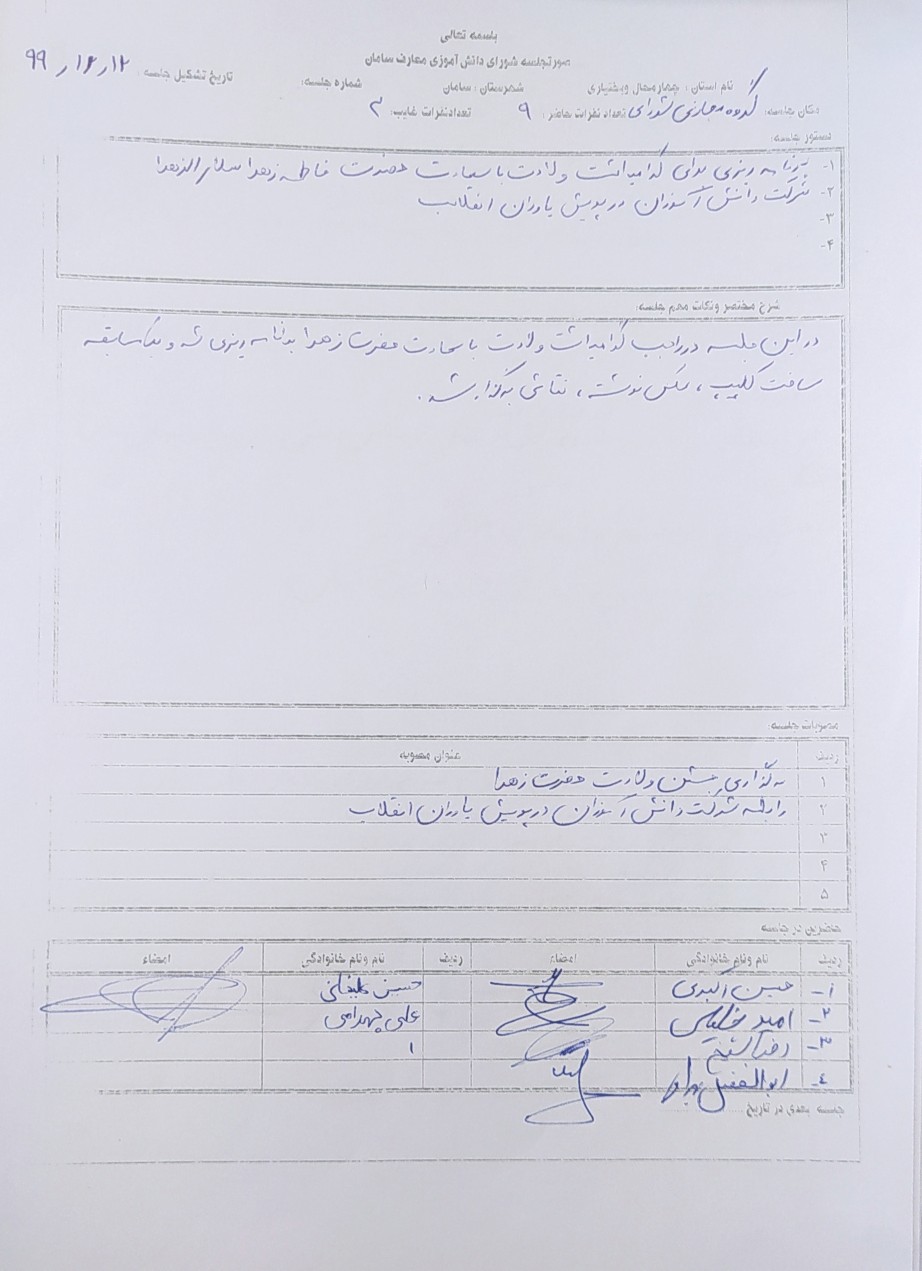 باسمه تعالی
صورتجلسه شورای دانش آموزی معارف سامان
نام استان : چهار محال و بختیاری شهرستان : سامان شماره جلسه: تاریخ تشکیل جلسه ۹۹٫۱۲٫۱۲
مکان جلسه: گروه مجازی شورای تعداد نفرات حاضر : ۹ تعداد نفرات غایب: ۲
دستور جلسه:
۱- برنامه ریزی برای گرامیداشت ولادت با سعادت حضرت فاطمه زهرا سلام الزهرا
۲- شرکت دانش آموزان در پویش یاوران انقلاب
۳-
۴-
شرح مختصر و نکات مهم جلسه:
در این جلسه در راحب گرامیداشت ولادت با سعادت حضرت زهرا برنامه ریزی شد و یک سابقه
ساخت کلیپ ، عکس نوشته ، نقاشی برگزار شد .
مصوبات جلسه:
ردیف عنوان مصوبه
۱ برگزاری جشن ولادت حضرت زهرا
۲ رابطه شرکت دانش آموزان در پویش یاوران انقلاب
۳
۴
۵
حاضرین در جلسه
ردیف نام ونام خانوادگی امضاء ردیف نام ونام خانوادگی امضاء
۱- حسین اکبری حسین
۲- امید علی
۳- رضا
۴- ابوالفضل
جلسه بعدی در تاریخ